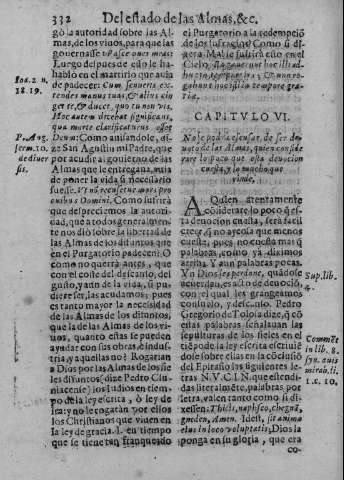 332 Del estado de las Almas, &c.
gò la autoridad sobre las Almas, de los viuos, para que las
gouernasse
Luego despues que
hablò en el martirio que auia
de padecer: Cum senueris extendes manus tuas, & alius cinget te, & ducet, quo tu non vis.
Hoc autem dicebat significans,
qua morte clarificaturus esset
Deum: Como auisandole, dize San Agustin mi Padre, que
por acudir al gouierno de las
Almas que le entregaua, auia
de poner la vida si necesario
fuesse.
Domini. Como
la autoridad, que a todos generalmente nos diò sobre la libertad de
las Almas de los difuntos que
en el Purgatorio padecen? O
como no querrà assi, que
con el coste del descanso, del
gusto, y aun de la vida, si pudiere ser, las acudamos; pues
es tanto mayor la necesidad
de las Almas de los difuntos,
que la de las Almas de los viuos, quanto estas se pueden
ayudar con sus obras, è industria, y aquellas no? Rogarian
a Dios por las Almas de los fieles difuntos (dize Pedro Cluniacense) los Iudios en tiempo de la ley escrita, ò ley de
y no le rogaràn por ellos
los Christianos que viuen en
la ley de gracia. I. en tiempo
que se tienen franqueado
Ioa. 21.
18. 19.
P. Aug.
serm. 10.
de diuersis.
el Purgatorio a la redempció
de los sufragios? Como si dixera. Mal se sufrirà esto en el
Cielo.
CAPITVLO VI.
No se podrà escusar, de ser deuoto de las Almas, quien considerare lo poco que esta deuocion
cuesta, y lo mucho que
A Quien atentamente
cósiderare lo poco q̃ esta deuocion cuesta, serà facil
creer q̃, no aya cosa que menos
cueste, pues no cuesta mas q̃
palabras, como ya diximos
arriba. Y aun palabras pocas.
Yo Dios les perdone, quádo se
ocurriere, es acto de deuocion,
con el qual les grangeamos
consuelo, y descanso. Pedro
Gregorio de Tolosa dize, q̃ cõ
estas palabras señalauan las
sepulturas de los fieles en el
tiempo de la ley escrita: escriuiédole sobre ellas en la cóclusió
del Epitafio las siguientes letras N.V.C.I.N. que estendidas literalméte, palabras por
letra, valen tanto como si dixessen:
Amen. Idest, sit anima
eius in loco voluptatis, Dios la
ponga en su gloria, que era
Sup. lib.
4.
in lib. 8.
syn. auis
mirab. li.
1. c. 10.
co-